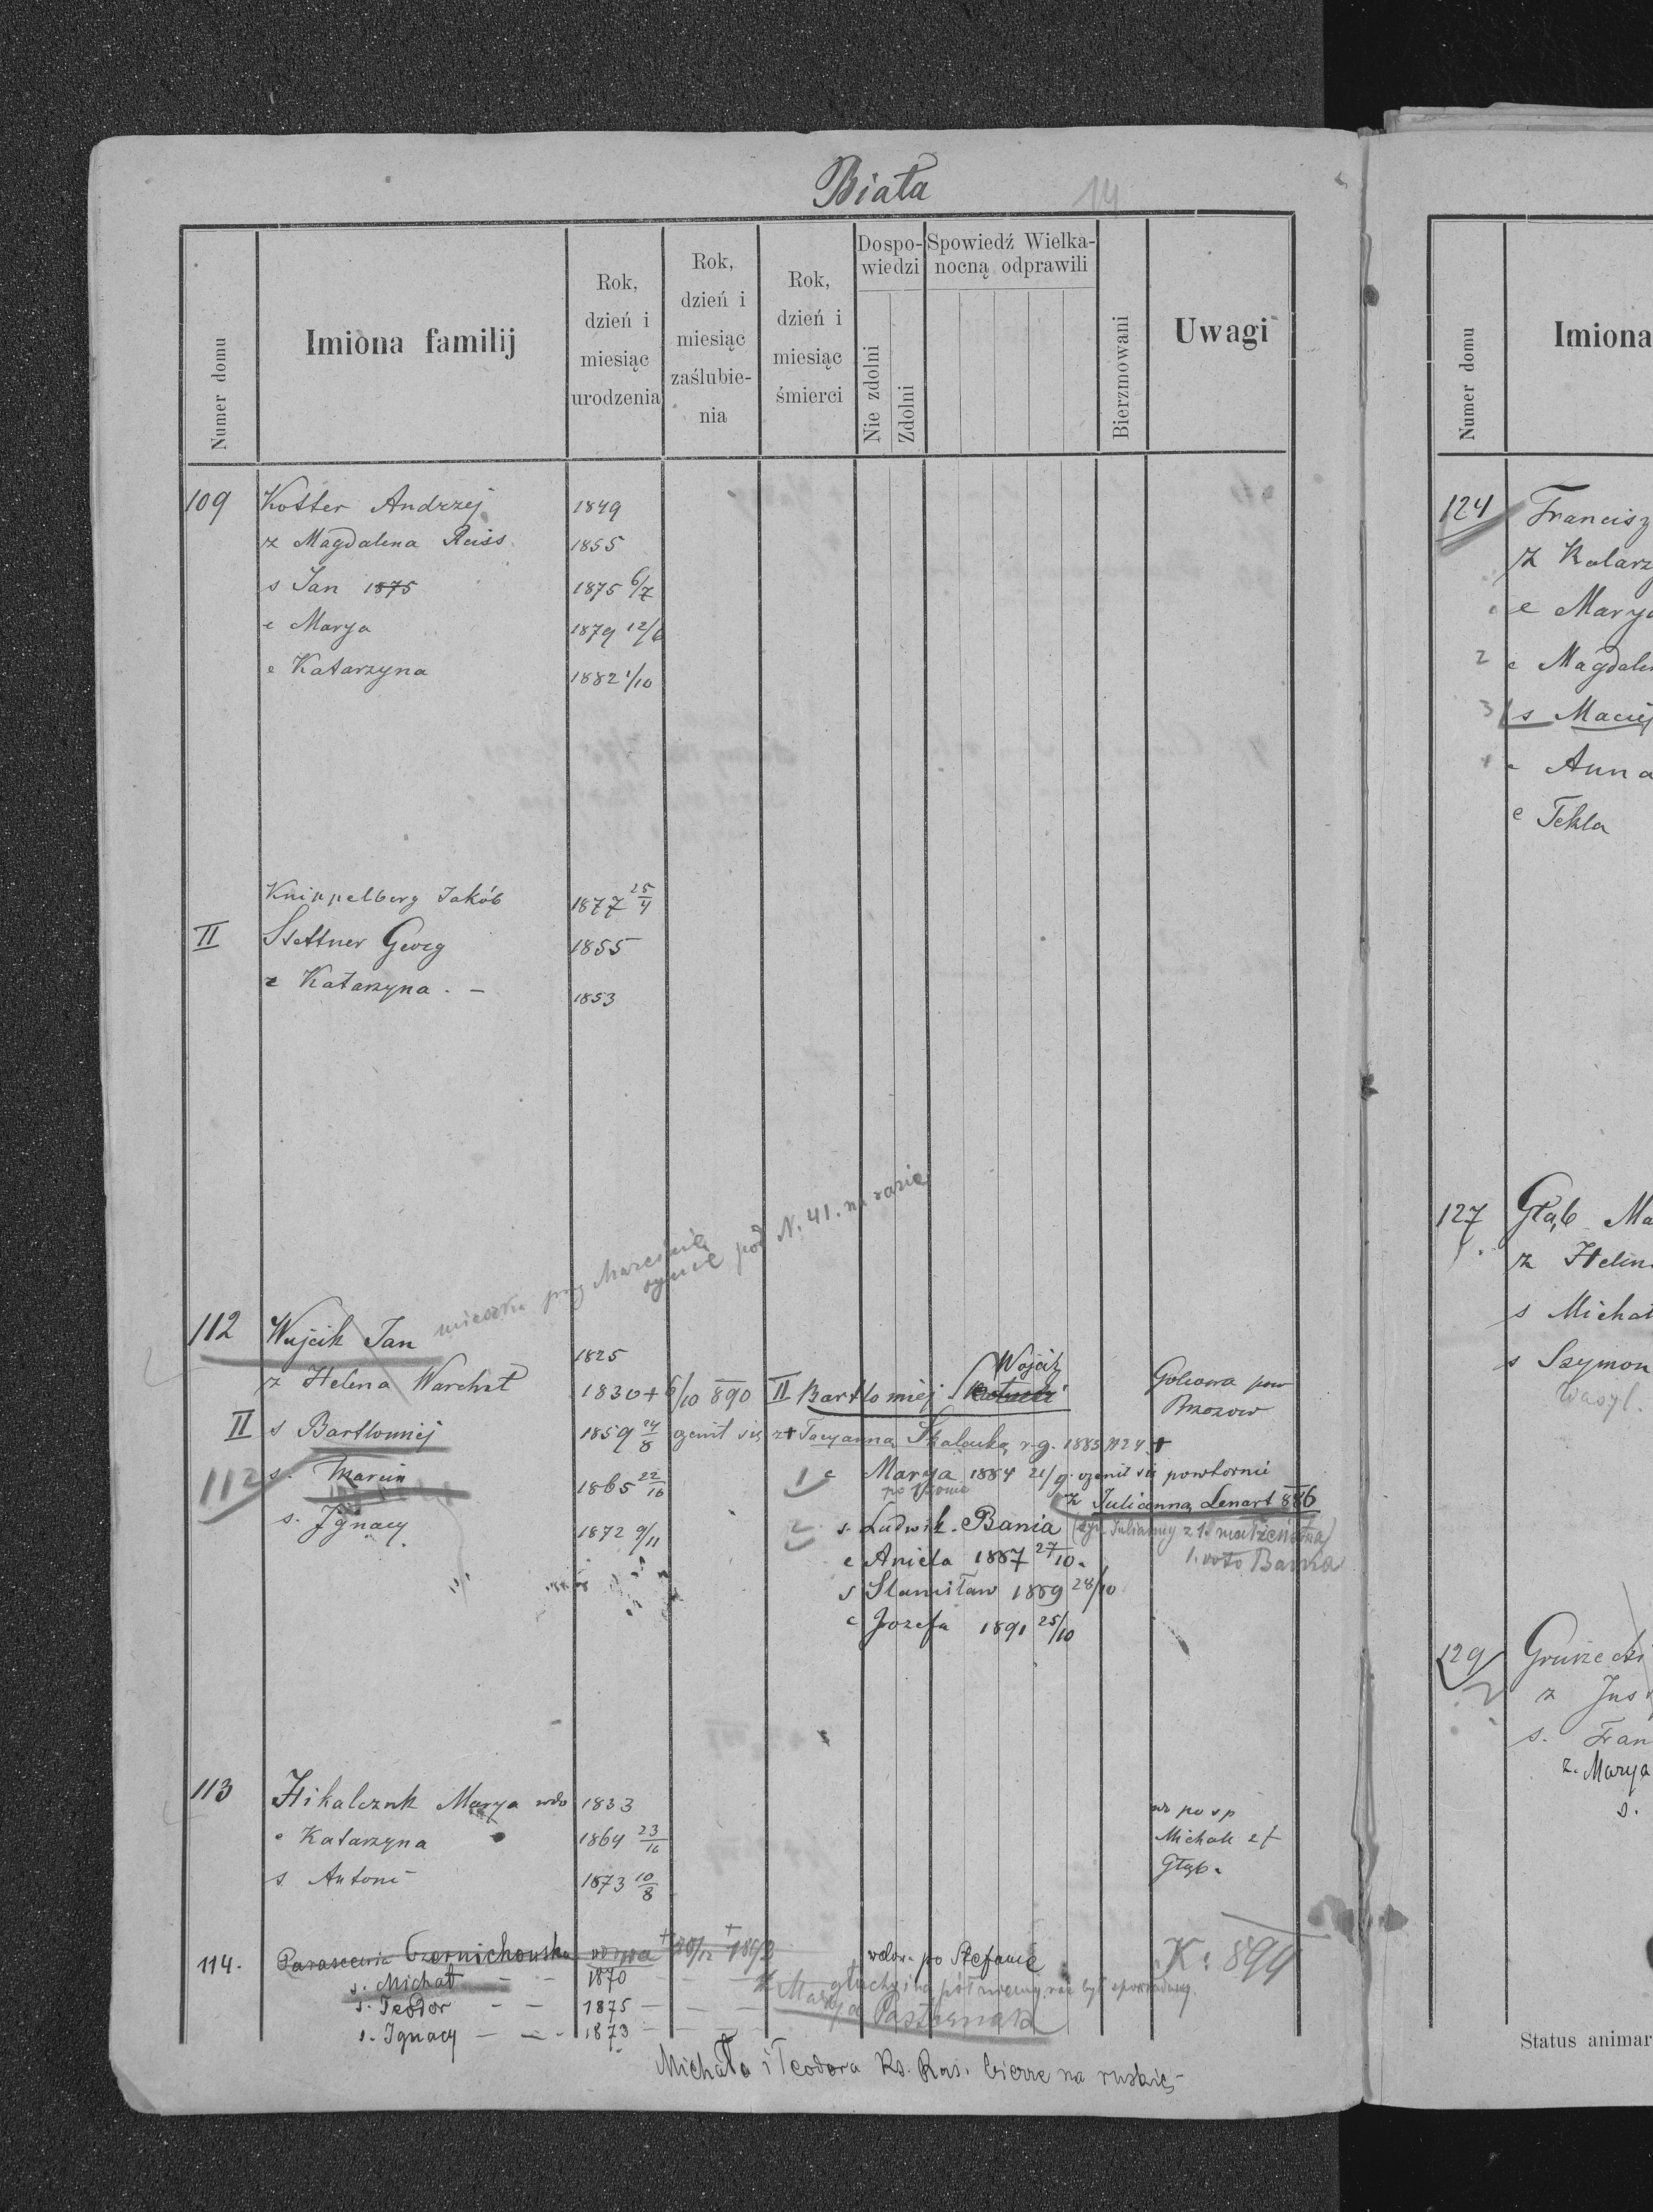 Biała
14
Numer domu
Imiona familij
Rok, dzień i miesiąc urodzenia
Rok, dzień i miesiąc zaślubie-nia
Rok, dzień i miesiąc śmierci
Dospo-wiedzi
Nie zdolni
Zdolni
Spowiedź Wielka-nocną odprawili
Bierzmowani
Uwagi
109 Kotter Andrzej 1849
z Magdalena Reiss 1855
s Jan 1875 1875 6/7
c Marya 1879 12/6
c Katarzyna 1882 1/10
Knippelberg Jakób 1877 25/4
II Stettner Georg 1855
z Katarzyna . – 1853
mieszka przy Marcinie
synie pod N. 41. na razie
112 Wujcik Jan 1825
z Helena Warchał 1830 + 6/10 890 II Bartłomiej Wojcik Golcowa pow
Brzozow
II s Bartłomiej 1859 24/8 ożenił się z + Tacyanna Skalcuka r. g. 1883 N24 +
1 c Marya 1884 21/9 ożenił się powtornie
112 s. Marcin 1865 22/10
po żonie
z Julianna Lenart 886
s. Ignacy 1872 9/11
2 s. Ludwik. Bania (syn Julianny z 1. małżeństwa)
c Aniela 1887 27/10. 1. voto Bania
s Stanisław 1889 28/10
c Jozefa 1891 25/10
113 Hikalczuk Marya wdo 1833 w po sp
c Katarzyna 1864 23/10 Michale et
s. Antoni 1873 10/8 Głąb.
114. Parascewia Czernichowska wdowa + 20/12 1892 wdow. po Stefanie K: 899
s. Michał – – 1870 głuchy i na pół niemy
s. Teodor – – 1875 – – – z Marya Pasternak
s. Ignacy – – – 1873 – – –
Michała i Teodora Ks. Rus. bierze na ruskie –
Numer domu
Imiona
124 Francisz
z Katarz
c Marya
2 c Magdalen
3 s Maciej
c Anna
c Tekla
127 Głąb Ma
z Helen
s Michał
s Szymon
Wasyl.
129 Gruszecki
z Jus
s. Fran
z. Marya
s.
Status animar